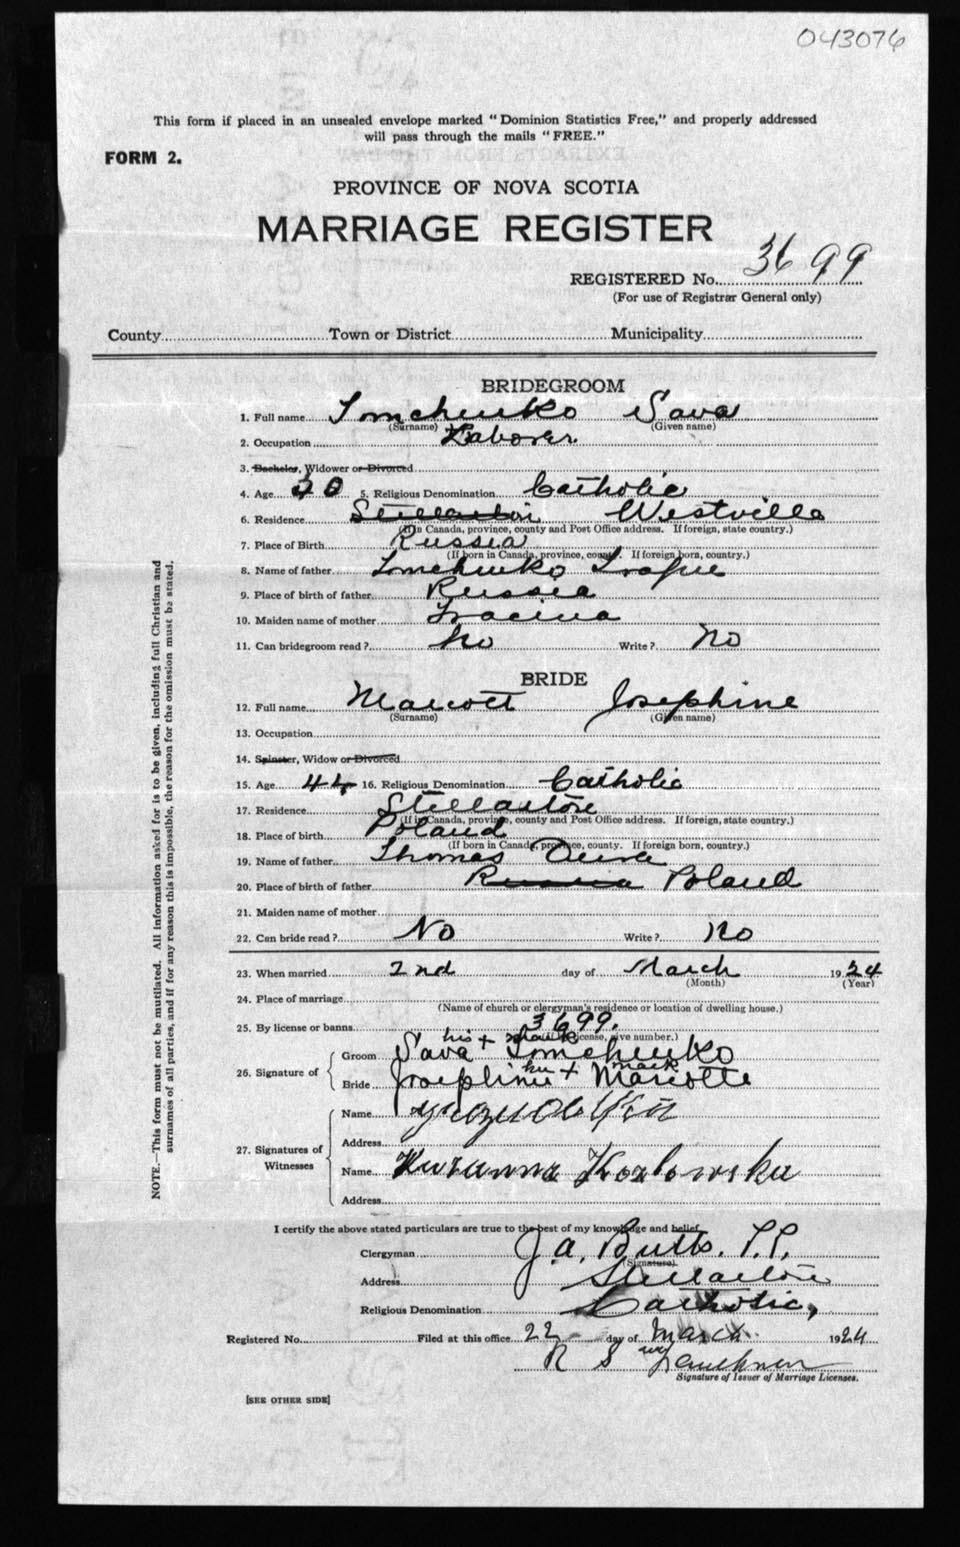 043076
This form if placed in an unsealed envelope marked "Dominion Statistics Free," and properly addressed
will pass through the mails "FREE."
FORM 2.
PROVINCE OF NOVA SCOTIA
MARRIAGE REGISTER
REGISTERED No. 3699
(For use of Registrar General only)
County Town or District Municipality
BRIDEGROOM
1. Full name Tomchuko Sava
(Surname) (Given name)
2. Occupation Laborer
3. Bachelor, Widower or Divorced
4. Age 5. Religious Denomination Catholic
6. Residence Stellarton Westville
(If in Canada, province, county and Post Office address. If foreign, state country.)
7. Place of Birth Russia
(If born in Canada, province, county. If foreign born, country.)
8. Name of father Tomchuko
9. Place of birth of father Russia
10. Maiden name of mother
11. Can bridegroom read? No Write? No
BRIDE
12. Full name Marcott Josephine
(Surname) (Given name)
13. Occupation
14. Spinster, Widow or Divorced
15. Age 44 16. Religious Denomination Catholic
17. Residence Stellarton
(If in Canada, province, county and Post Office address. If foreign, state country.)
18. Place of birth Poland
(If born in Canada, province, county. If foreign born, country.)
19. Name of father Thomas
20. Place of birth of father Russia Poland
21. Maiden name of mother
22. Can bride read? No Write? No
23. When married 2nd day of March 1924
(Month) (Year)
24. Place of marriage
(Name of church or clergyman's residence or location of dwelling house.)
25. By license or banns 3699.
(If by license, give number.)
his + mark
26. Signature of Groom Sava Tomchuko
her + mark
Bride Josephine Marcotte
27. Signatures of Witnesses
Name
Address
Name Kozlowska
Address
I certify the above stated particulars are true to the best of my knowledge and belief.
Clergyman J. A. Butts. P.P.
(Signature)
Address Stellarton
Religious Denomination Catholic,
Registered No. Filed at this office 22 day of March 1924
R S Faulkner
Signature of Issuer of Marriage Licenses.
[SEE OTHER SIDE]
NOTE.—This form must not be mutilated. All information asked for is to be given, including full Christian and
surnames of all parties, and if for any reason this is impossible, the reason for the omission must be stated.